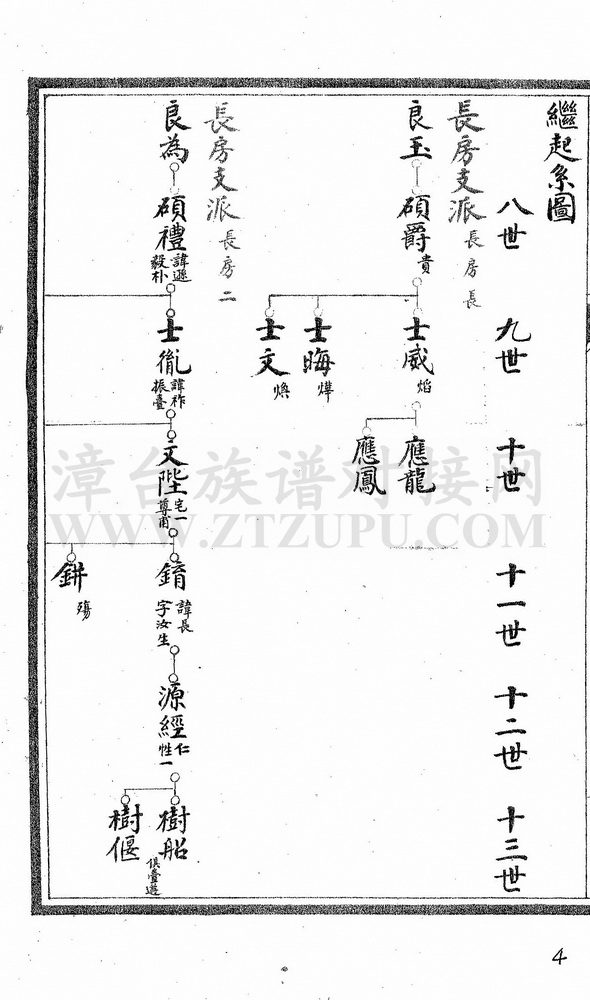 繼起系圖
八世
九世
十世
十一世
十二世
十三世
長房支派
長房長
良玉
碩爵
貴
士威
焰
士晦
燁
士文
煥
應龍
應鳳
長房支派
長房二
良為
碩禮
諱遜
毅朴
士胤
諱祚
振臺
文陛
宅一
尊甫
錥
諱長
字汝生
鉼
殤
源經
仁
性一
樹船
俱臺遊
樹偃
漳台族谱对接网
WWW.ZTZUPU.COM
4